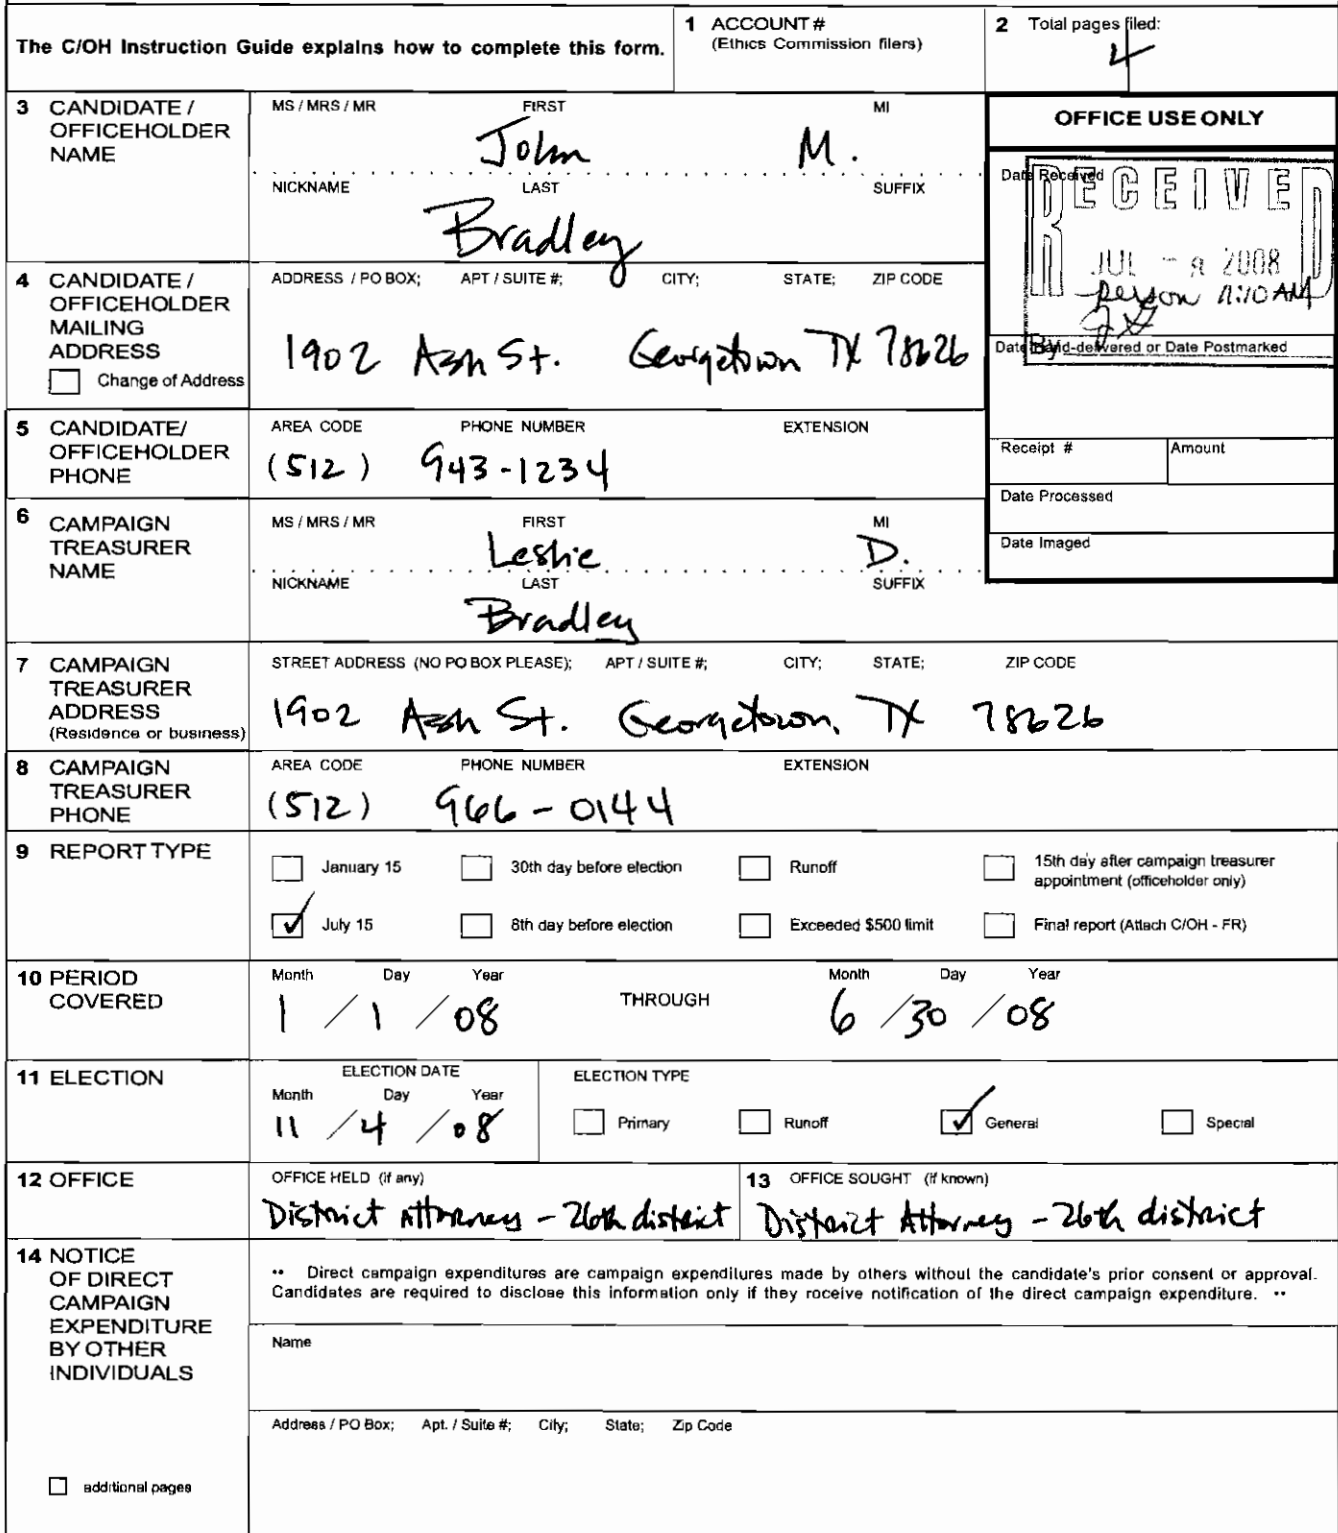 The C/OH Instruction Guide explains how to complete this form.
1 ACCOUNT #
(Ethics Commission filers)
2 Total pages filed:
4
3 CANDIDATE /
OFFICEHOLDER
NAME
MS / MRS / MR FIRST MI
John M.
NICKNAME LAST SUFFIX
Bradley
OFFICE USE ONLY
Date Received
RECEIVED
JUL 2008
person 11:10 AM
By
Date Hand-delivered or Date Postmarked
Receipt # Amount
Date Processed
Date Imaged
4 CANDIDATE /
OFFICEHOLDER
MAILING
ADDRESS
Change of Address
ADDRESS / PO BOX; APT / SUITE #; CITY; STATE; ZIP CODE
1902 Ash St. Georgetown TX 78626
5 CANDIDATE/
OFFICEHOLDER
PHONE
AREA CODE PHONE NUMBER EXTENSION
(512) 943-1234
6 CAMPAIGN
TREASURER
NAME
MS / MRS / MR FIRST MI
Leslie D.
NICKNAME LAST SUFFIX
Bradley
7 CAMPAIGN
TREASURER
ADDRESS
(Residence or business)
STREET ADDRESS (NO PO BOX PLEASE); APT / SUITE #; CITY; STATE; ZIP CODE
1902 Ash St. Georgetown, TX 78626
8 CAMPAIGN
TREASURER
PHONE
AREA CODE PHONE NUMBER EXTENSION
(512) 966-0144
9 REPORT TYPE
January 15 30th day before election Runoff 15th day after campaign treasurer
appointment (officeholder only)
July 15 8th day before election Exceeded $500 limit Final report (Attach C/OH - FR)
10 PERIOD
COVERED
Month Day Year THROUGH Month Day Year
1 / 1 / 08 6 / 30 / 08
11 ELECTION
ELECTION DATE
Month Day Year
11 / 4 / 08
ELECTION TYPE
Primary Runoff General Special
12 OFFICE
OFFICE HELD (if any)
District Attorney - 26th district
13 OFFICE SOUGHT (if known)
District Attorney - 26th district
14 NOTICE
OF DIRECT
CAMPAIGN
EXPENDITURE
BY OTHER
INDIVIDUALS
•• Direct campaign expenditures are campaign expenditures made by others without the candidate's prior consent or approval.
Candidates are required to disclose this information only if they receive notification of the direct campaign expenditure. ••
Name
Address / PO Box; Apt. / Suite #; City; State; Zip Code
additional pages